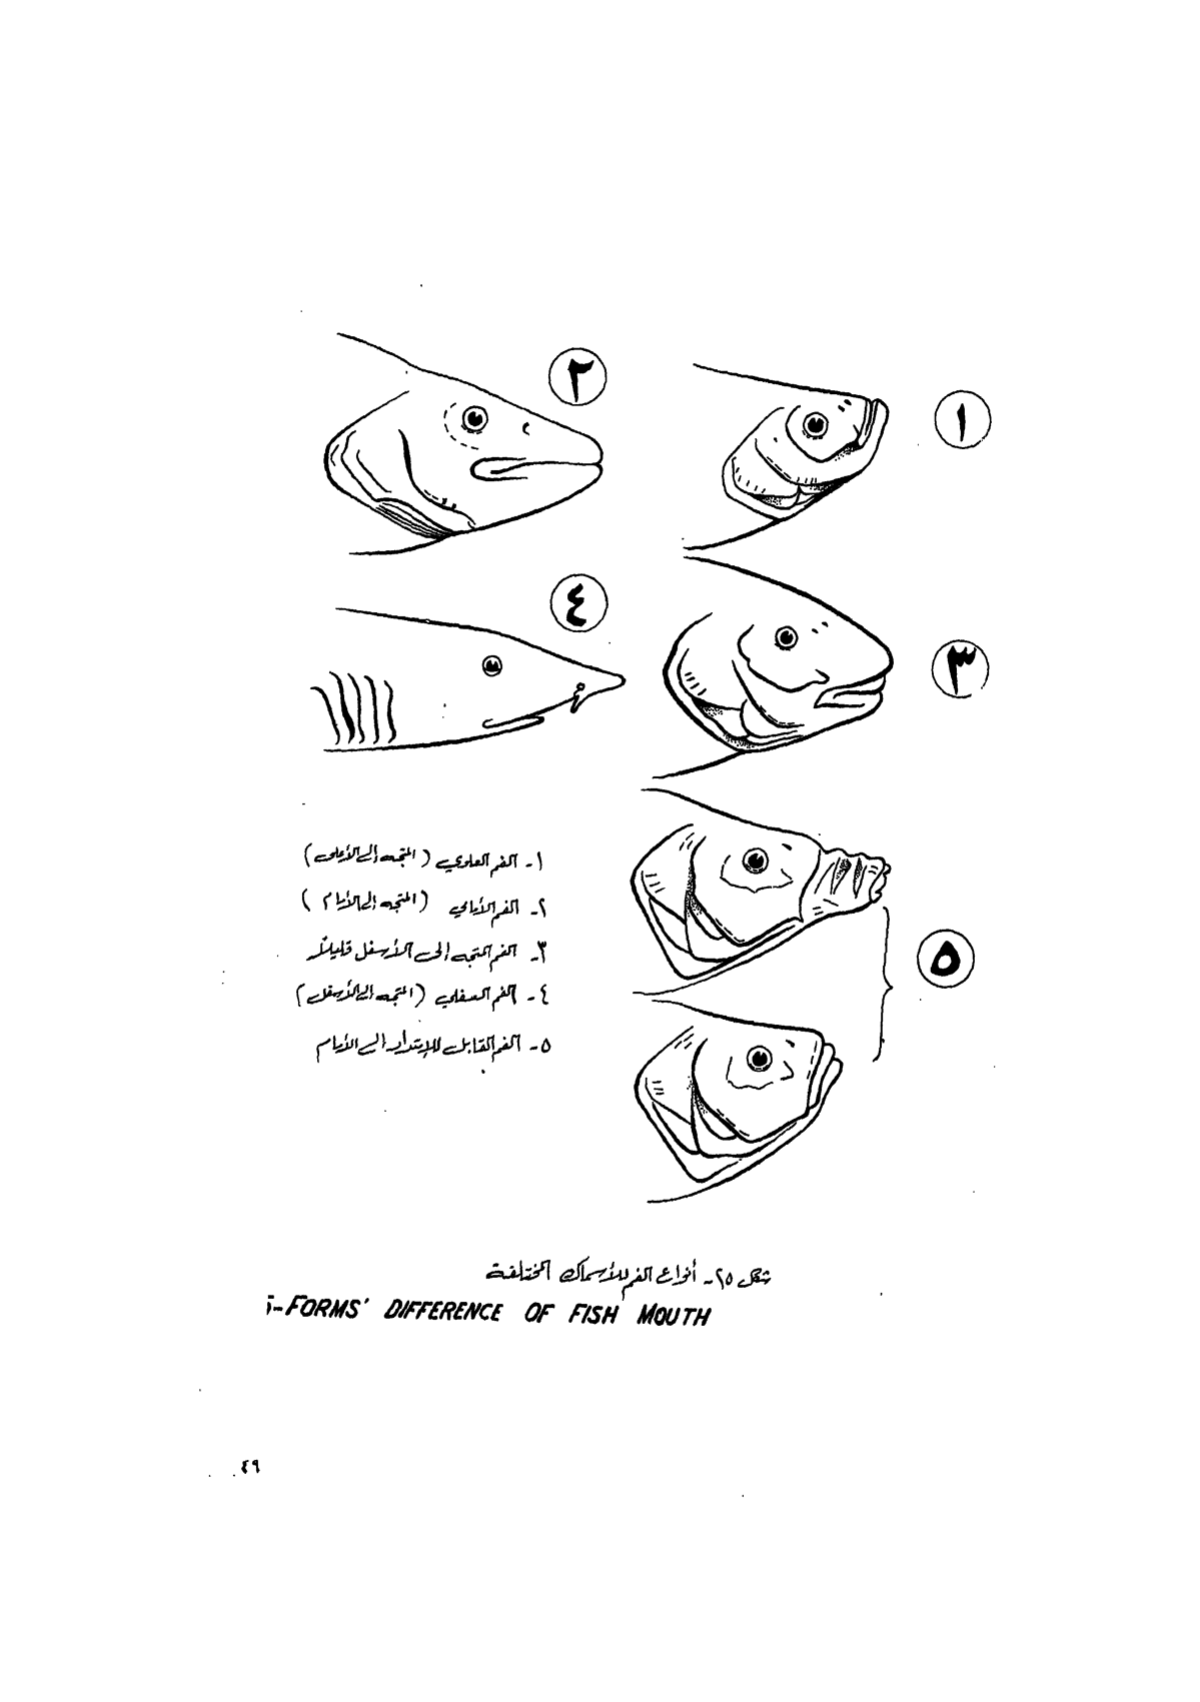 ٢
١
٤
٣
١- الفم العلوي (المتجه إلى الأعلى)
٢- الفم الأمامي (المتجه إلى الأمام)
٣- الفم المتجه الى الأسفل قليلاً
٤- الفم السفلي (المتجه الى الأسفل)
٥- الفم القابل للإمتداد الى الأمام
٥
شكل ٢٥- أنواع الفم للأسماك المختلفة
-FORMS' DIFFERENCE OF FISH MOUTH
٤٩